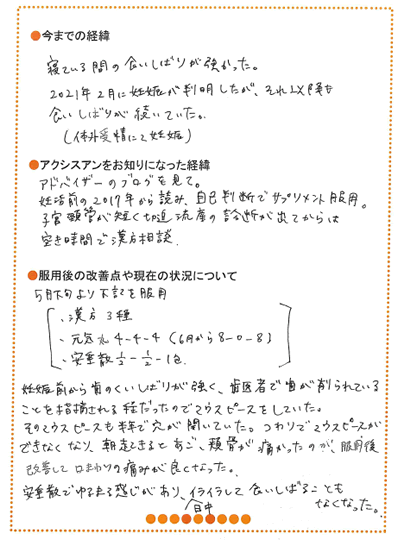 ●今までの経緯
寝ている間の食いしばりが強かった。
2021年2月に妊娠が判明したが、それ以降も
食いしばりが続いていた。
(体外受精にて妊娠)
●アクシスアンをお知りになった経緯
アドバイザーのブログを見て。
妊活前の2017年から読み、自己判断でサプリメント服用。
子宮頸管が短く切迫流産の診断が出てからは
空き時間で漢方相談。
●服用後の改善点や現在の状況について
5月下旬より下記を服用
・漢方3種
・元気丸 4-4-4 (6月から8-0-8)
・安亜散 1/2-1/2-1包
妊娠前から歯のくいしばりが強く、歯医者で歯が削られている
ことを指摘される程だったのでマウスピースをしていた。
そのマウスピースも半年で穴が開いていた。つわりでマウスピースが
できなくなり、朝起きるとあご、頬骨が痛かったのが、服用後
改善して口まわりの痛みが良くなった。
安亜散でゆるまる感じがあり、イライラして食いしばることも
日中
なくなった。